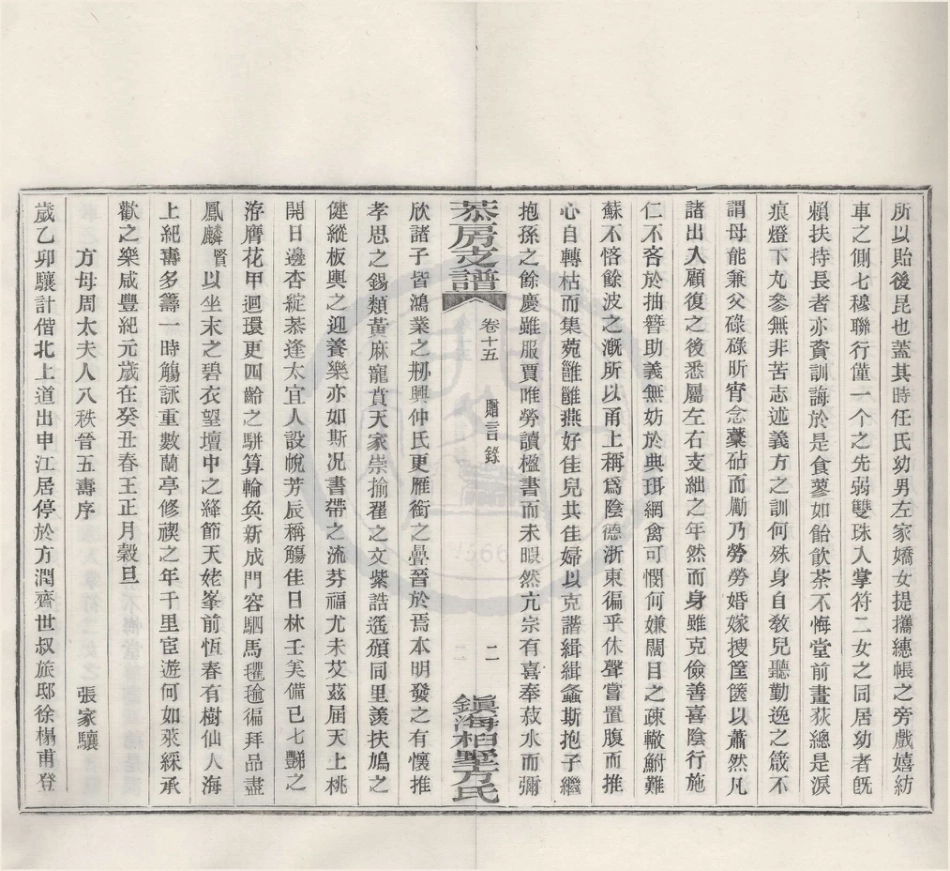 所以貽後昆也蓋其時任氏幼男左家嬌女提攜繐帳之旁戲嬉紡
車之側七穆聯行僅一个之先弱雙珠入掌符二女之同居幼者旣
賴扶持長者亦資訓誨於是食蓼如飴飮荼不悔堂前畫荻總是淚
痕燈下丸參無非苦志述義方之訓何殊身自敎兒聽勤逸之箴不
謂母能兼父碌碌昕宵念藁砧而勵乃勞勞婚嫁搜筐篋以蕭然凡
諸出入顧復之後悉屬左右支絀之年然而身雖克儉善喜陰行施
仁不吝於抽簪助義無妨於典珥網禽可憫何嫌闊目之疎轍鮒難
蘇不悋餘波之漑所以甬上稱爲陰德浙東徧乎休聲嘗置腹而推
心自轉枯而集菀雝雝燕好佳兒共佳婦以克諧緝緝螽斯抱子繼
抱孫之餘慶雖服賈唯勞讀楹書而未暇然亢宗有喜奉菽水而彌
恭房支譜
卷十五
贈言錄
二
鎭海柏墅方氏
欣諸子皆鴻業之剏興仲氏更雁銜之曡晉於焉本明發之有懷推
孝思之錫類黃麻寵賁天家崇揄翟之文紫誥遙頒同里羨扶鳩之
健縱板輿之迎養樂亦如斯况書帶之流芬福尤未艾茲届天上桃
開日邊杏綻棻逢太宜人設帨芳辰稱觴佳日林壬美備已七豒之
洊膺花甲迴環更四齡之騈算輪奐新成門容駟馬氍毹徧拜品盡
鳳麟賢以坐末之碧衣望壇中之絳節天姥峯前恆春有樹仙人海
上紀壽多籌一時觴詠重數蘭亭修禊之年千里宦遊何如萊綵承
歡之樂咸豐紀元歲在癸丑春王正月穀旦
方母周太夫人八秩晉五壽序
張家驤
歲乙卯驤計偕北上道出申江居停於方潤齋世叔旅邸徐榻甫登